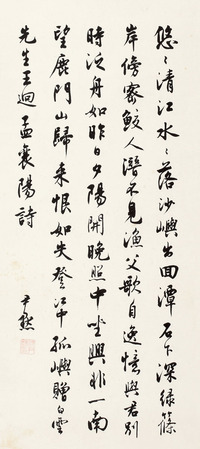 悠〻清江水〻落沙嶼出回潭石下深綠篠
岸傍密鮫人潛不見漁父歌自逸憶與君別
時泛舟如昨日夕陽開晚照中坐興非一南
望鹿門山歸來恨如失登江中孤嶼贈白雲
先生王迥 孟襄陽詩
尹默